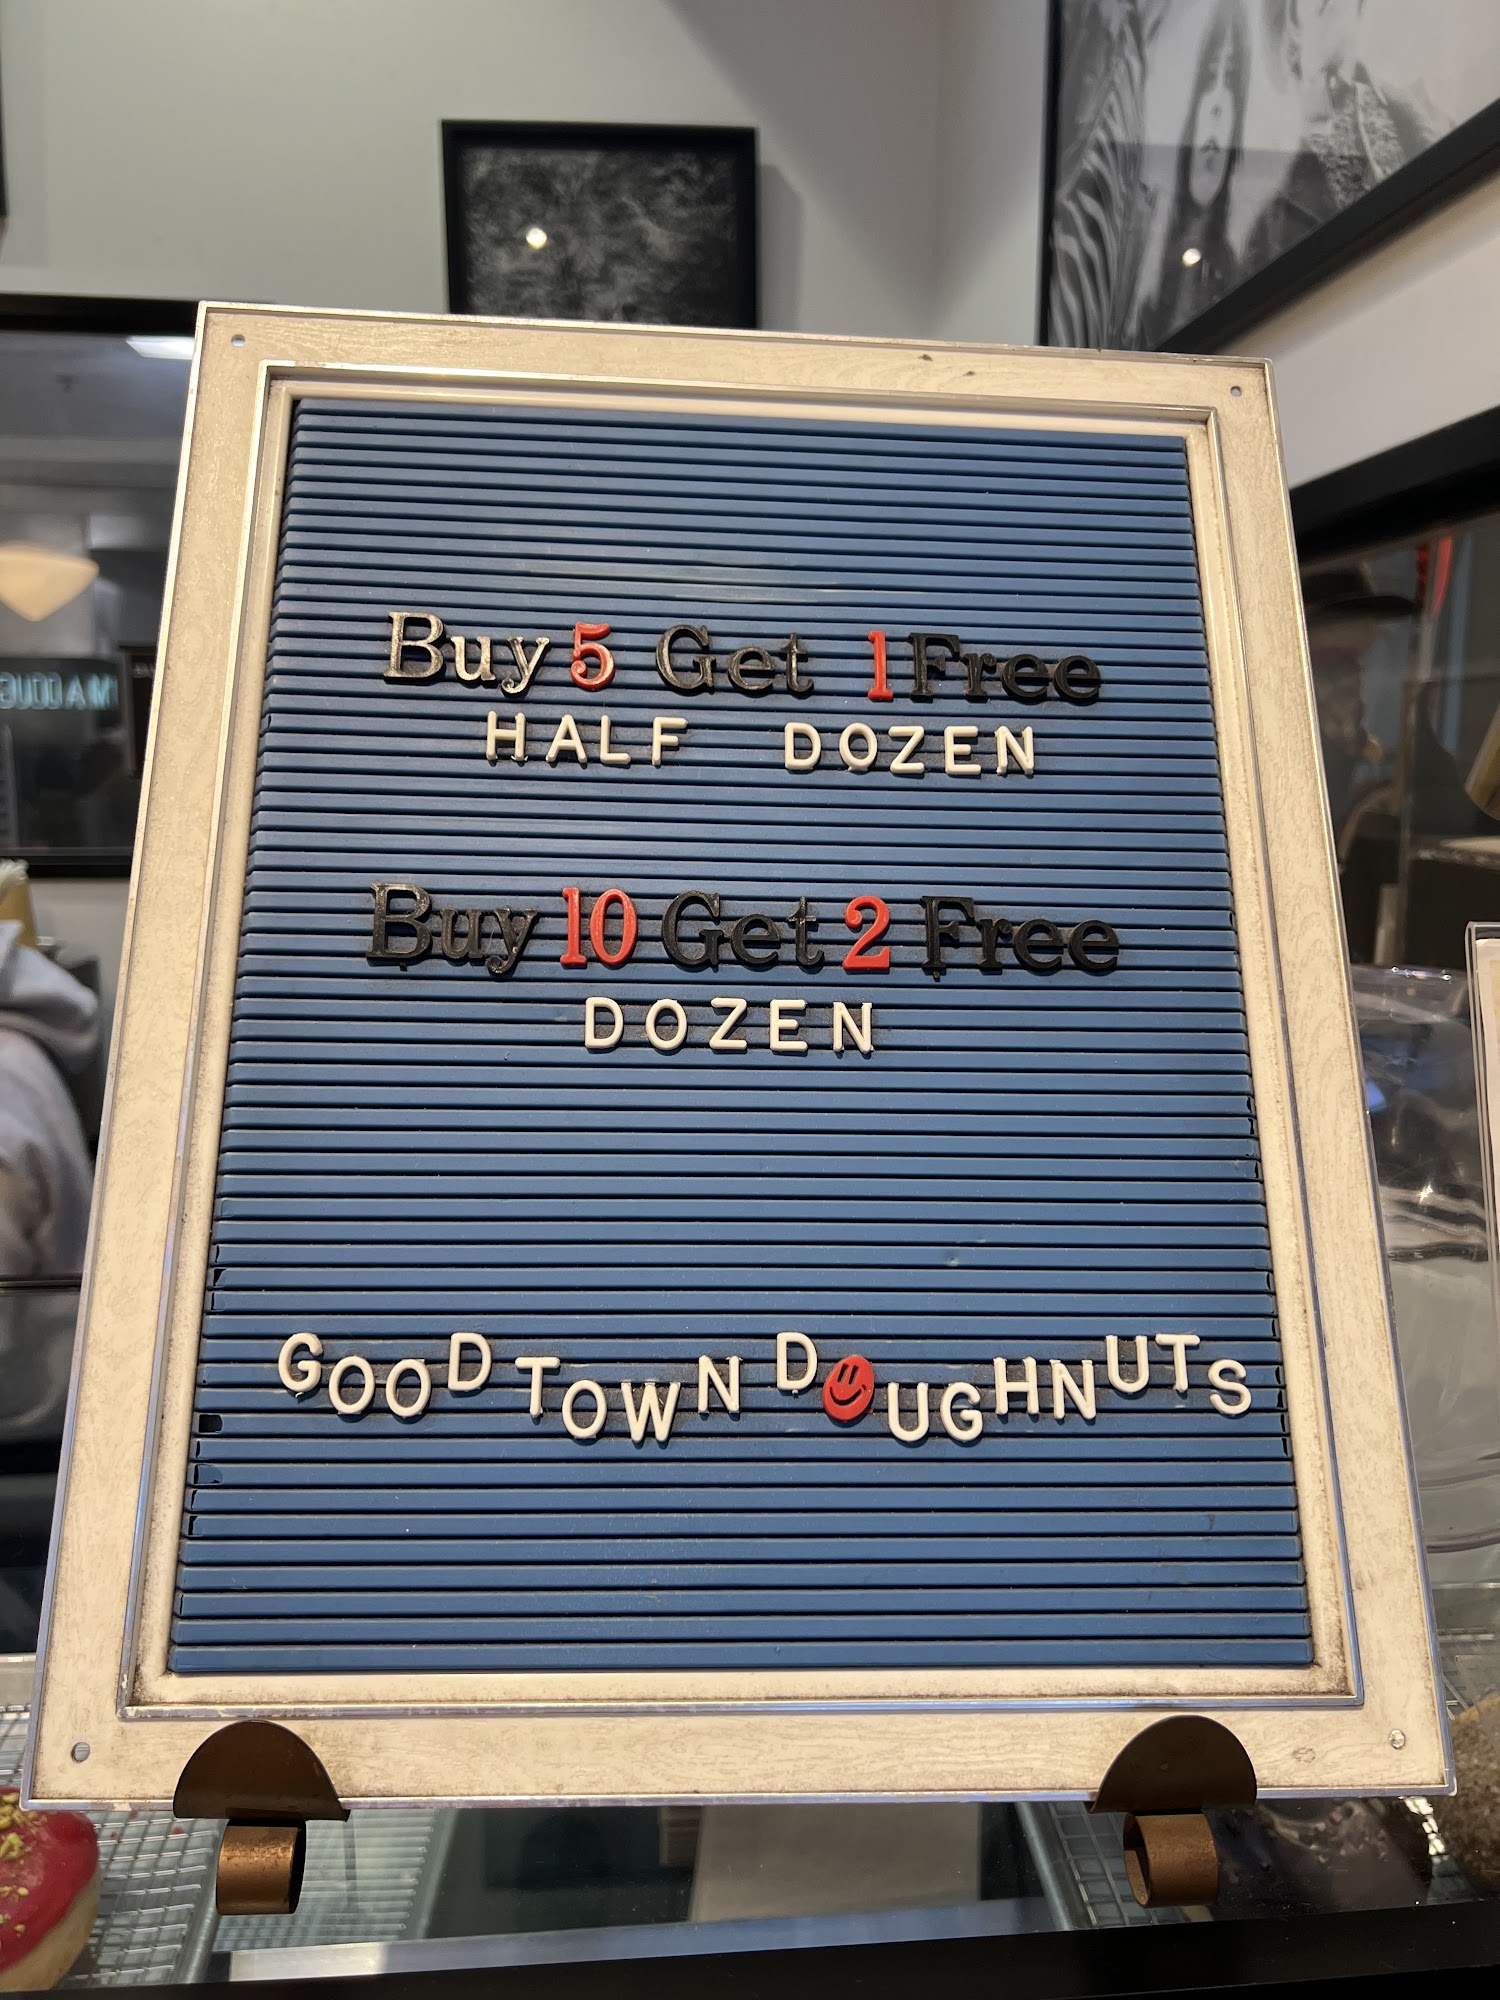 Buy 5 Get 1 Free
HALF DOZEN
Buy 10 Get 2 Free
DOZEN
GOOD TOWN DOUGHNUTS